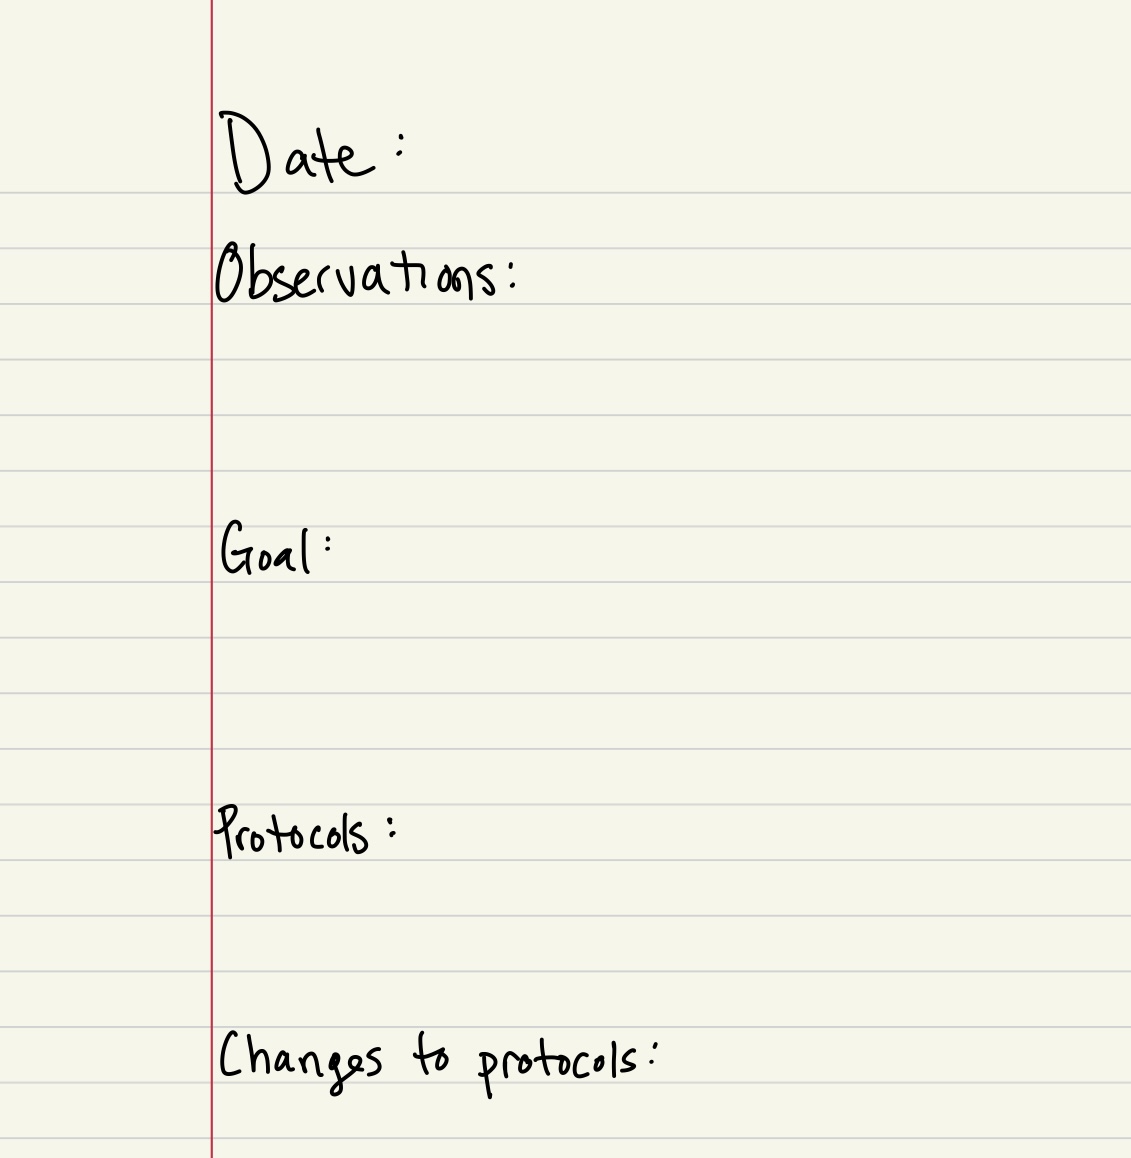 Date :
Observations:
Goal :
Protocols :
Changes to protocols: